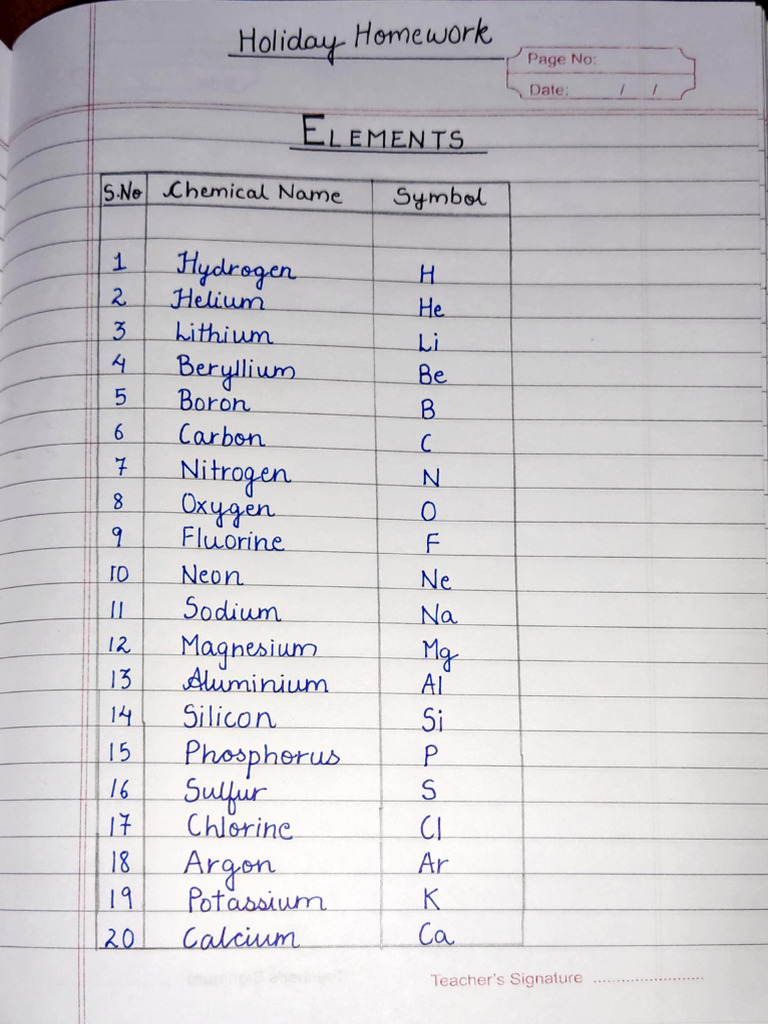 Holiday Homework
Page No:
Date: / /
ELEMENTS
S.No Chemical Name Symbol
1 Hydrogen H
2 Helium He
3 Lithium Li
4 Beryllium Be
5 Boron B
6 Carbon C
7 Nitrogen N
8 Oxygen O
9 Fluorine F
10 Neon Ne
11 Sodium Na
12 Magnesium Mg
13 Aluminium Al
14 Silicon Si
15 Phosphorus P
16 Sulfur S
17 Chlorine Cl
18 Argon Ar
19 Potassium K
20 Calcium Ca
Teacher's Signature ......................